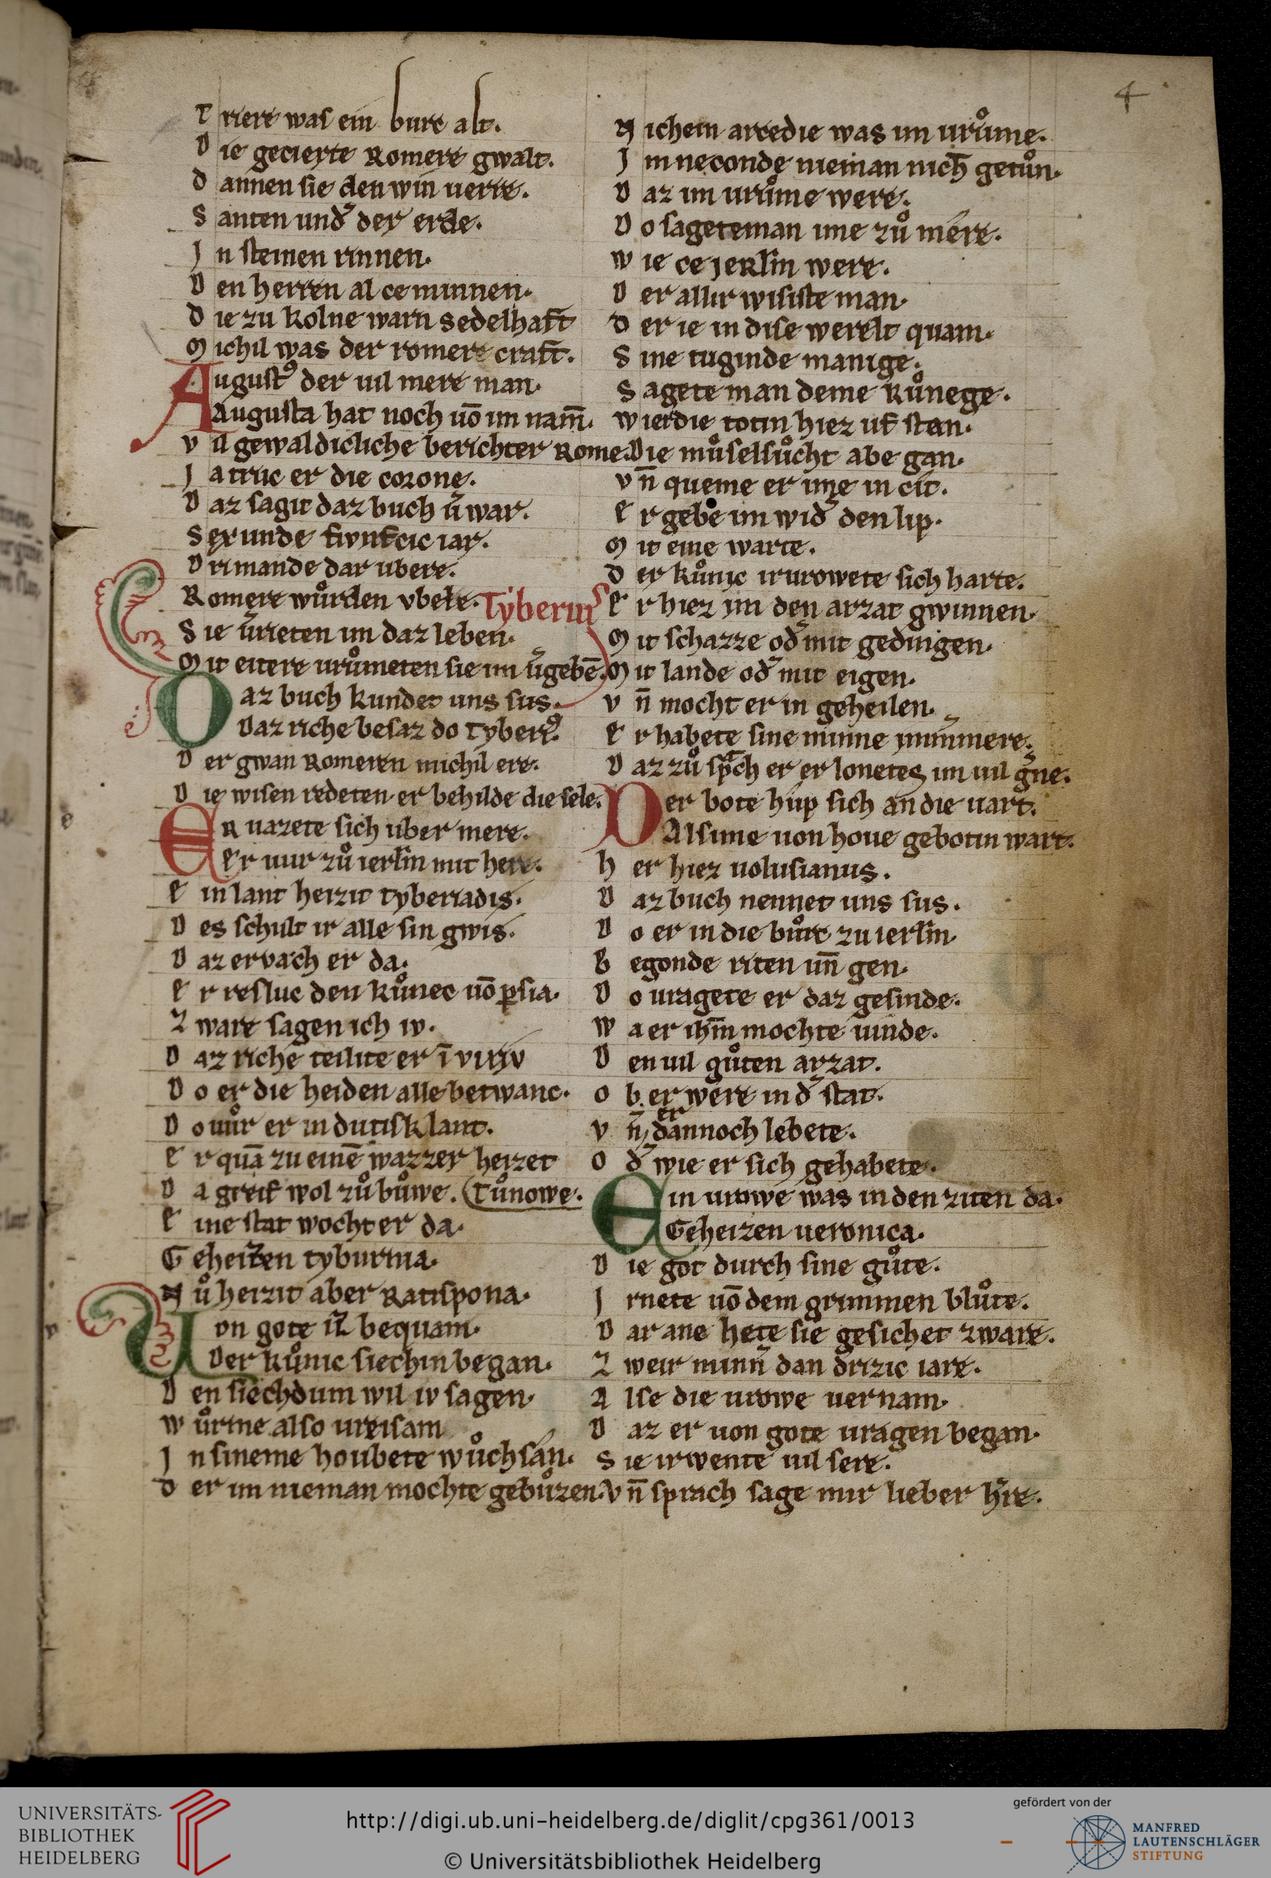 4
Triere was ein burc alt.
Die gecierte Romere gwalt.
dannen sie den win uerre.
Santen und̛ der erde.
In steinen rinnen.
Den herren al ce minnen.
Die zu kolne warn sedelhaft
Michil was der romere craft.
August᾽ der uil mere man.
Augusta hat noch uō im nam̄.
vil gewaldicliche berichter Rome.
Ja truc er die corone.
Daz sagit daz buch u̓war.
Sex unde fiunfcic iar.
Dri mande dar ubere.
Romere wůrden vbele. Tyberius
Sie ūrieten im daz leben.
Mit eitere urůmeten sie im u̓gebē.
Daz buch kundet uns sus.
Daz riche besaz do Tyberi᾽.
Der gwan Romeren michil ere.
Die wisen redeten er behilde die sele.
ER uazete sich uber mere.
er uur zů ierl̄m mit here.
ein lant heizit tyberiadis.
Des schult ir alle sin gwis.
Daz ervach er da.
er resluc den kůnec uō p̱sia.
Zware sagen ich iv.
Daz riche teilite er ī
Do er die heiden alle betwanc.
Do uůr er in dutisk lant.
er quā zu einē wazzer heizet
Da greif wol zů bůwe. Tůnowe.
eine stat wocht er da.
Geheizen tyburnia.
Nů heizit aber Ratispona.
Von gote iz bequam.
Der kůnic siechin began.
Den siechdum wil iv sagen.
wůrme also ureisam
In sineme houbete wůchsan.
der im nieman mochte gebůzen.
Nichein arcedie was im urůme.
Im neconde nieman nich̄ getůn.
Daz im urůme were.
Do sageteman ime zů mere.
wie ce jerl̄m were.
Der allir wisiste man.
Der ie in dise werelt quam.
Sine tuginde manige.
Sagete man deme kůnege.
wie rdie totin hiez uf stan.
Die můselsůcht abe gan.
vn̄ queme er ime in cit.
er gebe im wid̛ den lip.
Mit eine warte.
der kůnic irurowete sich harte.
er hiez im den arzat gwinnen.
Mit schazze od̛ mit gedingen.
Mit lande od̛ mit eigen.
vn̄ mocht er in geheilen.
er habete sine minne immmere.
Daz zů sp̄ch er er lonetes im uil g̛ne.
Der bote hůp sich an die uart.
Als ime uon houe gebotin wart.
her hiez uolusianus.
Daz buch nennet uns sus.
Do er in die bůrc zu ierl̄m
Begonde riten un̄ gen.
Do uragete er daz gesinde.
wa er ihm̄ mochte uinde.
Den uil gůten arzat.
ob er were in d̛ stat.
vn̄ er dannoch lebete.
od̛ wie er sich gehabete.
Ein urowe was in den ziten da.
Geheizen ueronica.
Die got durch sine gůte.
Irnete uō dem grimmen blůte.
Dar ane hete sie gesichet zware.
Zweir minn̄ dan drizic iare.
Alse die urowe uernam.
Daz er uon gote uragen began.
Sie irwente uil sere.
vn̄ sprach sage mir lieber h̓re.
UNIVERSITÄTS-
BIBLIOTHEK
HEIDELBERG
http://digi.ub.uni-heidelberg.de/diglit/cpg361/0013
© Universitätsbibliothek Heidelberg
gefördert von der
MANFRED
LAUTENSCHLÄGER
STIFTUNG